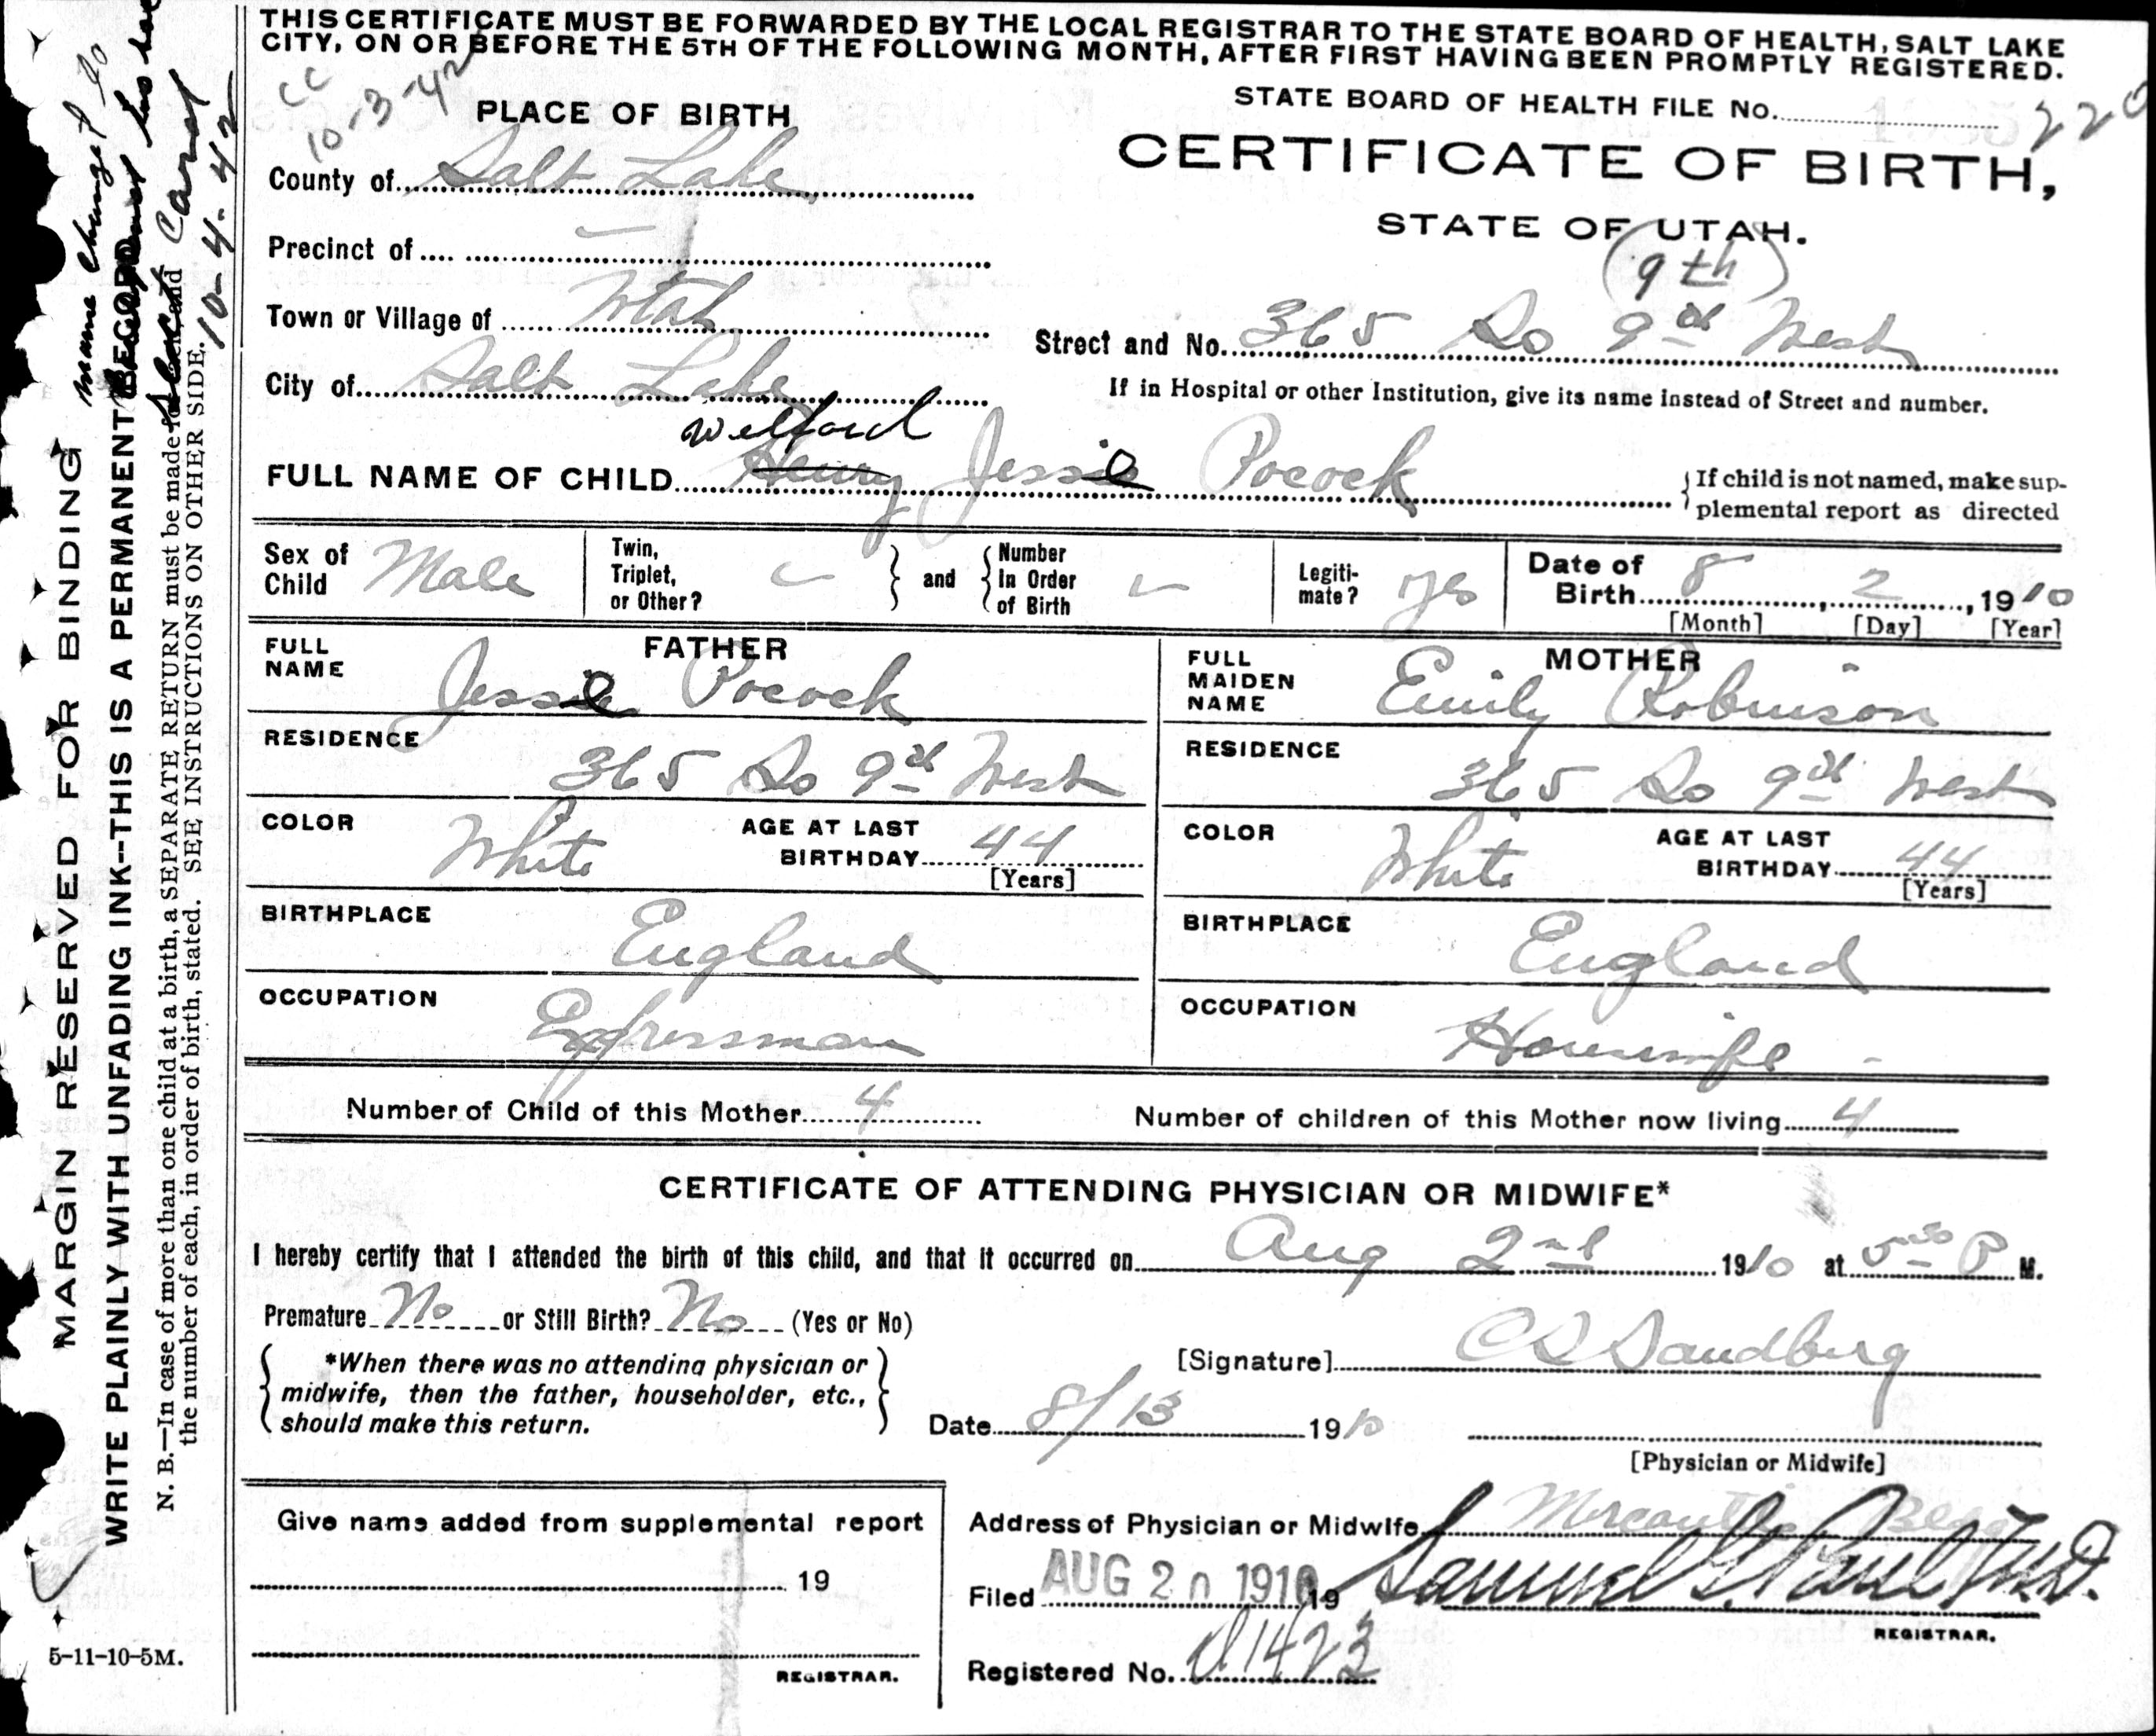 THIS CERTIFICATE MUST BE FORWARDED BY THE LOCAL REGISTRAR TO THE STATE BOARD OF HEALTH, SALT LAKE
CITY, ON OR BEFORE THE 5TH OF THE FOLLOWING MONTH, AFTER FIRST HAVING BEEN PROMPTLY REGISTERED.
CC
10-3-42
PLACE OF BIRTH
STATE BOARD OF HEALTH FILE No. 220
CERTIFICATE OF BIRTH,
STATE OF UTAH.
County of Salt Lake
Precinct of
Town or Village of Utah
(9th)
Street and No. 365 So 9th West
City of Salt Lake
If in Hospital or other Institution, give its name instead of Street and number.
Welford
FULL NAME OF CHILD Henry Jesse Pocock
If child is not named, make sup-
plemental report as directed
Sex of Child Male
Twin, Triplet, or Other?
and
Number In Order of Birth
Legiti-mate? yes
Date of Birth 8, 2, 1910
[Month] [Day] [Year]
FATHER
FULL NAME Jesse Pocock
MOTHER
FULL MAIDEN NAME Emily Robinson
RESIDENCE 365 So 9th West
RESIDENCE 365 So 9th West
COLOR White
AGE AT LAST BIRTHDAY 44
[Years]
COLOR White
AGE AT LAST BIRTHDAY 44
[Years]
BIRTHPLACE England
BIRTHPLACE England
OCCUPATION Expressman
OCCUPATION Housewife
Number of Child of this Mother 4
Number of children of this Mother now living 4
CERTIFICATE OF ATTENDING PHYSICIAN OR MIDWIFE*
I hereby certify that I attended the birth of this child, and that it occurred on Aug 2nd 1910 at 5 30 P M.
Premature No or Still Birth? No (Yes or No)
*When there was no attending physician or
midwife, then the father, householder, etc.,
should make this return.
[Signature] Sandberg
Date 8/13 1910
[Physician or Midwife]
Give name added from supplemental report
19
REGISTRAR.
Address of Physician or Midwife Mercantile Bldg
Filed AUG 20 1910 19 Samuel G. Paul M.D.
REGISTRAR.
Registered No. 1423
5-11-10-5M.
MARGIN RESERVED FOR BINDING
WRITE PLAINLY WITH UNFADING INK--THIS IS A PERMANENT RECORD
N. B.—In case of more than one child at a birth, a SEPARATE RETURN must be made for each, and
the number of each, in order of birth, stated. SEE INSTRUCTIONS ON OTHER SIDE.
name changed to
10-4-42